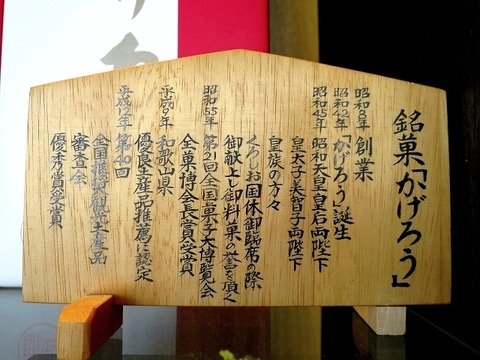 銘菓「かげろう」
昭和8年 創業
昭和42年 「かげろう」誕生
昭和45年 昭和天皇皇后両陛下
皇太子美智子両陛下
皇族の方々
くろしお国体御臨席の際
御献上し御料菓の誉を頂く
昭和55年 第21回全国菓子大博覧会
全菓博会長賞受賞
平成9年 和歌山県
優良土産品推薦に認定
平成12年 第40回
全国推奨観光土産品
審査会
優秀賞受賞